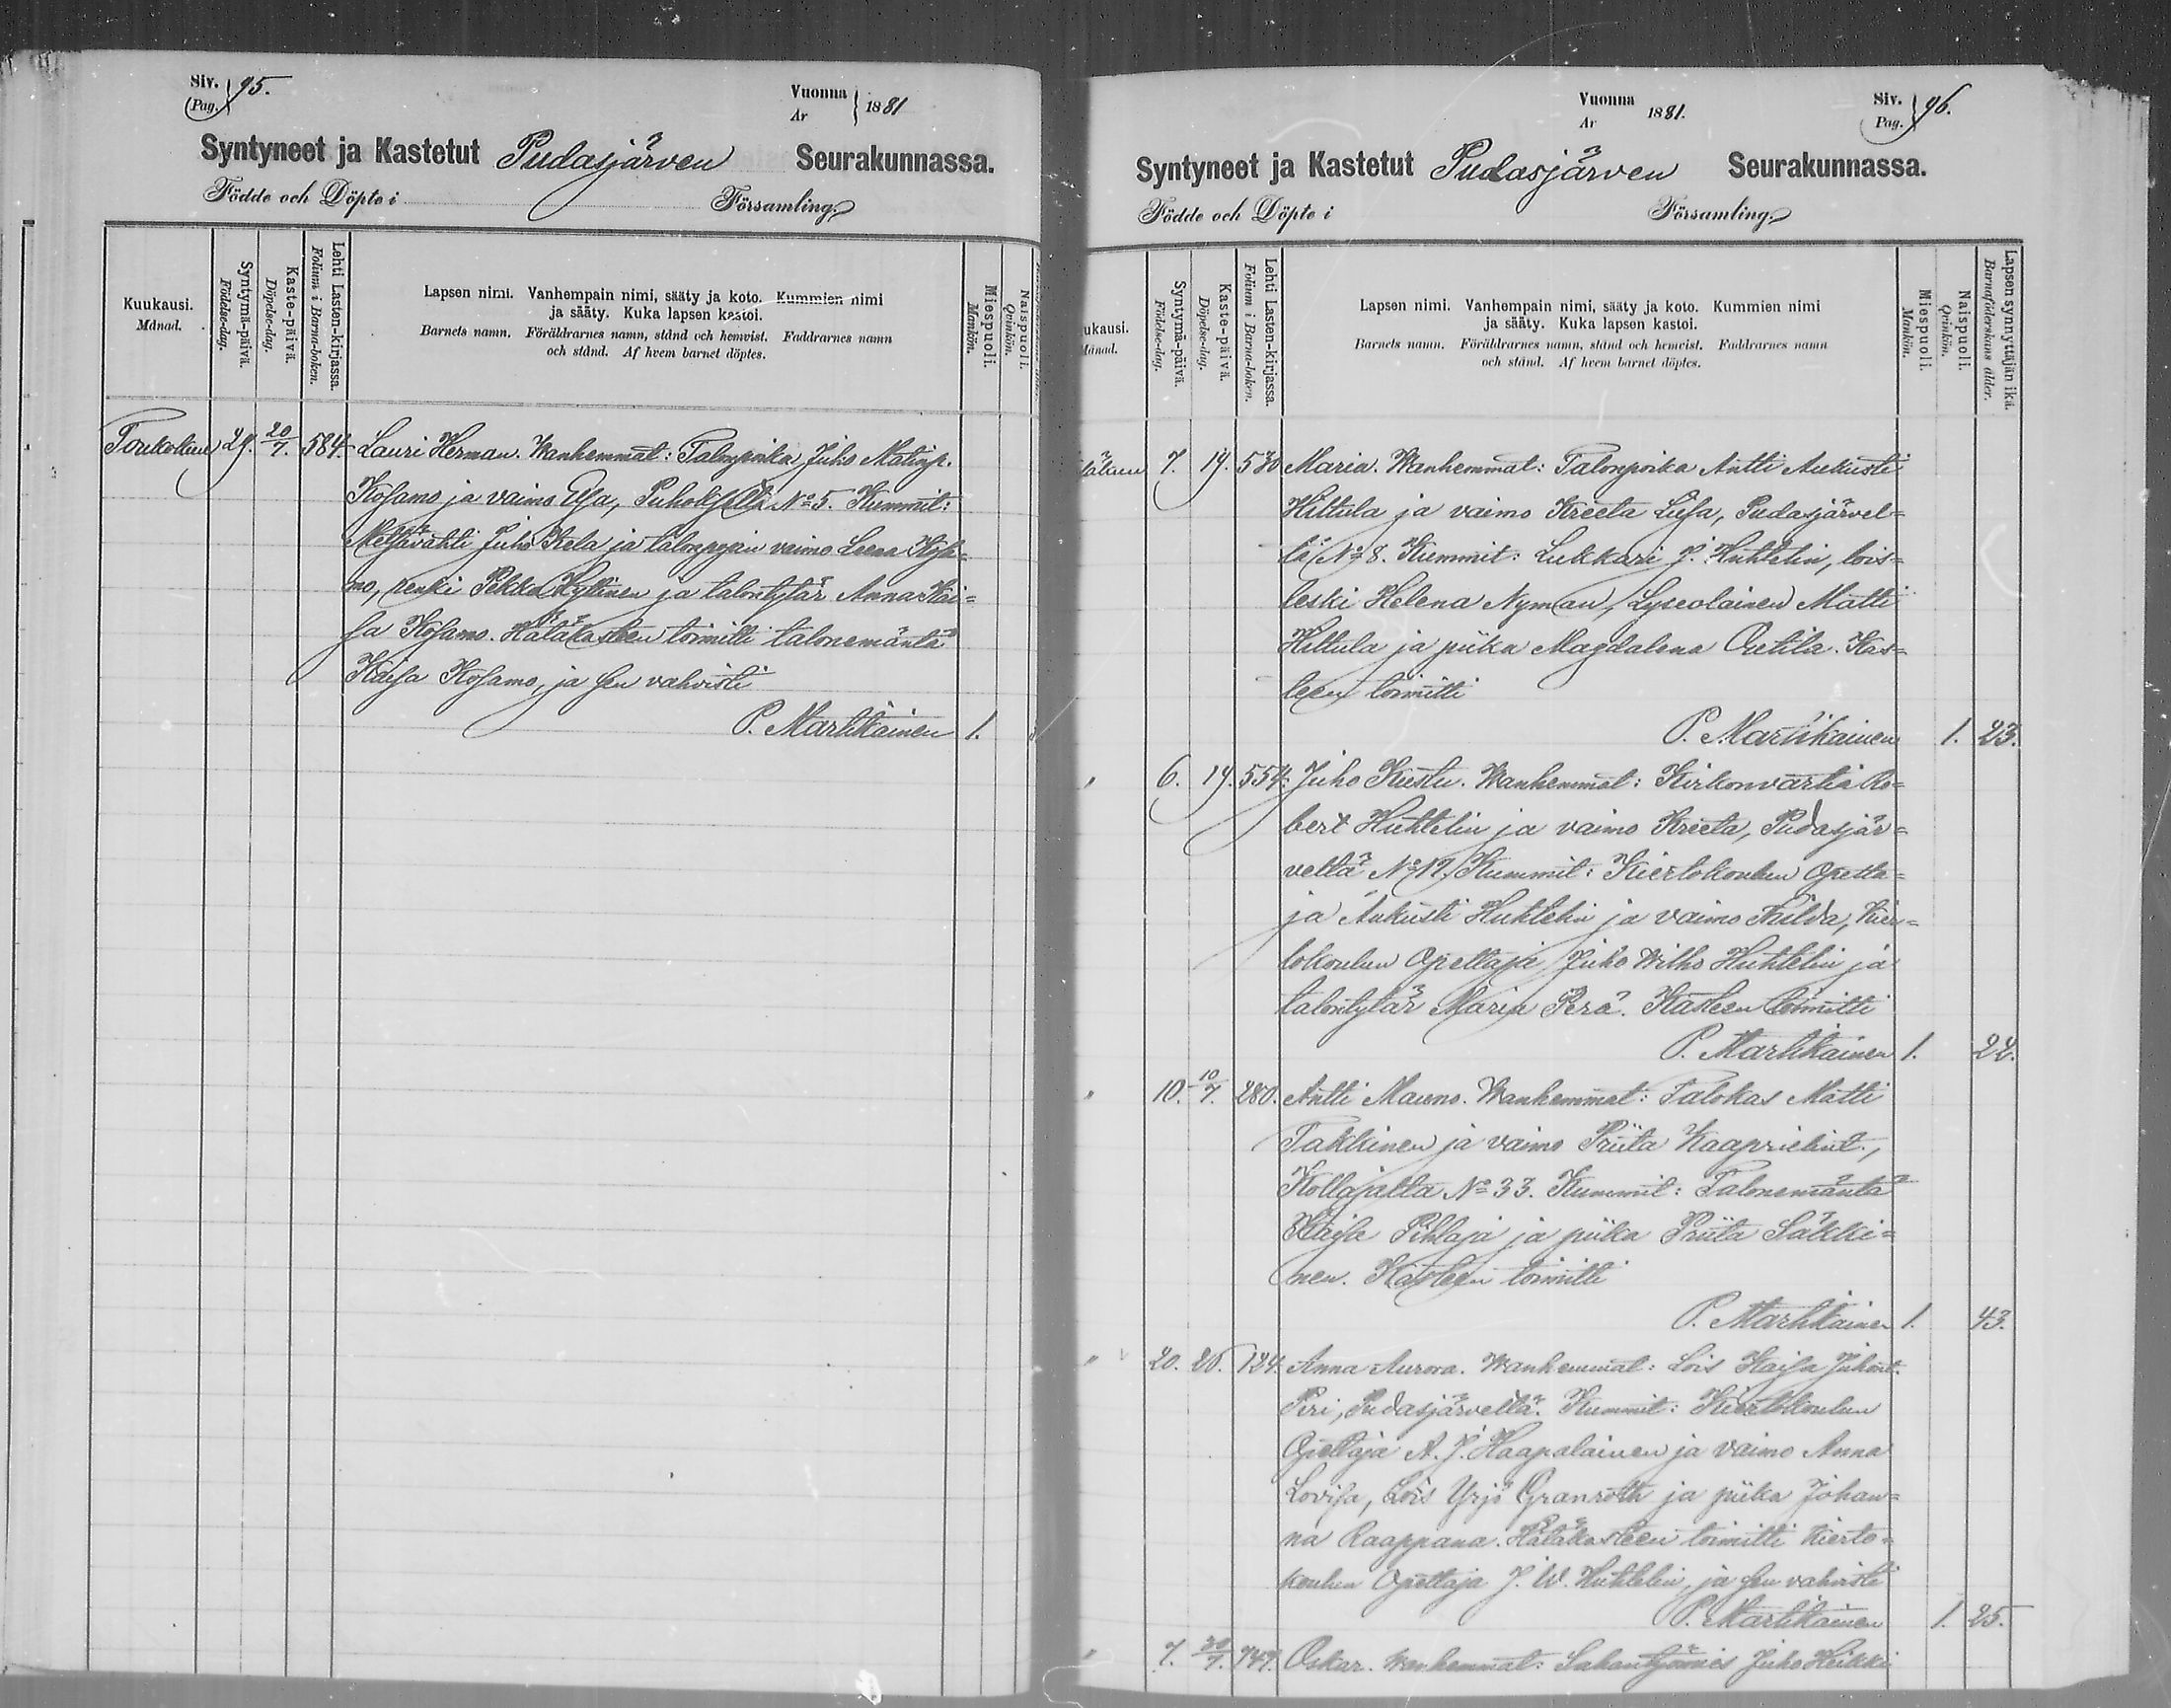 Siv. 95.
Pag.
Vuonna 1881
Ar
Syntyneet ja Kastetut Pudasjärven Seurakunnassa.
Födde och Döpte i Församling.
Kuukausi.
Månad.
Syntymä-päivä.
Födelse-dag.
Kaste-päivä.
Döpelse-dag.
Lehti Lasten-kirjassa.
Folium i Barna-boken.
Lapsen nimi. Vanhempain nimi, sääty ja koto. Kummien nimi
ja sääty. Kuka lapsen kastoi.
Barnets namn. Föräldrarnes namn, stånd och hemvist. Faddrarnes namn
och stånd. Af hvem barnet döptes.
Miespuoli.
Mankön.
Naispuoli.
Qvinkön.
Toukokuu 29. 20/7. 584. Lauri Herman. Wanhemmat: Talonpoika Juho Matinp.
Kosamo ja vaimo Elsa, Puhoksella No 5. Kummit:
Metsävahti Juho Kela ja talonpojan vaimo Leena Kosa=
mo, renki Pekka Kyllinen ja talontytär Anna Kai=
sa Kosamo. Hätäkasteen toimitti talonemäntä
Kaisa Kosamo, ja sen vahvisti
P. Martikainen 1.
Vuonna 1881.
Ar
Siv. 96.
Pag.
Syntyneet ja Kastetut Pudasjärven Seurakunnassa.
Födde och Döpte i Församling.
ukausi.
Månad.
Syntymä-päivä.
Födelse-dag.
Kaste-päivä.
Döpelse-dag.
Lehti Lasten-kirjassa.
Folium i Barna-boken.
Lapsen nimi. Vanhempain nimi, sääty ja koto. Kummien nimi
ja sääty. Kuka lapsen kastoi.
Barnets namn. Föräldrarnes namn, stånd och hemvist. Faddrarnes namn
och stånd. Af hvem barnet döptes.
Miespuoli.
Mankön.
Naispuoli.
Qvinkön.
Lapsen synnyttäjän ikä.
Barnaföderskans ålder.
7. 19. 530 Maria. Wanhemmat: Talonpoika Antti Aukusti
Hiltula ja vaimo Kreeta Liisa, Pudasjärvel=
lä No 8. Kummit: Lukkari J. Huhtelin, lois=
leski Helena Nyman, Lyseolainen Matti
Hiltula ja piika Magdalena Outila. Kas=
teen toimitti
P. Martikainen 1. 23.
" 6. 19. 554. Juho Kustu. Wanhemmat: Kirkonvartia Ro=
bert Huhtelin ja vaimo Kreeta, Pudasjär=
vellä No 12. Kummit: Kiertokoulun Opetta=
ja Aukusti Huhtelin ja vaimo Hilda, kier=
tokoulun Opettaja Juho Wilho Huhtelin ja
talontytär Maria Perä. Kasteen toimitti
P. Martikainen 1. 24.
" 10. 10/7. 280. Antti Mauno. Wanhemmat: Talokas Matti
Takkinen ja vaimo Priita Kaaprielint.,
Kollajalla No 33. Kummit: Talonemäntä
Kaisa Pihlaja ja piika Priita Säkki=
nen. Kasteen toimitti
P. Martikainen 1. 43.
" 20. 26. 124. Anna Aurora. Wanhemmat: Lois Kaisa Juhont.
Piri, Pudasjärvellä. Kummit: Kiertokoulun
Opettaja A. J. Haapalainen ja vaimo Anna
Lovisa, Lois Yrjö Granroth ja piika Johan=
na Raappana. Hätäkasteen toimitti kierto=
koulun Opettaja J. W. Huhtelin, ja sen vahvisti
P. Martikainen 1. 25.
" 7. 30/7. 747. Oskar. Wanhemmat: Sahantyömies Juho Heikki